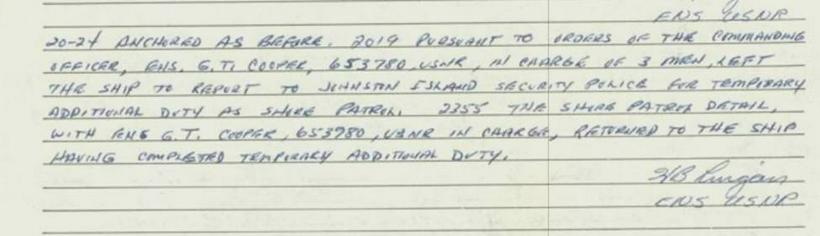 ENS USNR
20-24 ANCHORED AS BEFORE. 2019 PURSUANT TO ORDERS OF THE COMMANDING
OFFICER, ENS. G.T. COOPER, 653780, USNR, IN CHARGE OF 3 MEN, LEFT
THE SHIP TO REPORT TO JOHNSTON ISLAND SECURITY POLICE FOR TEMPORARY
ADDITIONAL DUTY AS SHORE PATROL. 2355 THE SHORE PATROL DETAIL,
WITH ENS G.T. COOPER, 653780, USNR IN CHARGE, RETURNED TO THE SHIP
HAVING COMPLETED TEMPORARY ADDITIONAL DUTY.
ENS USNR